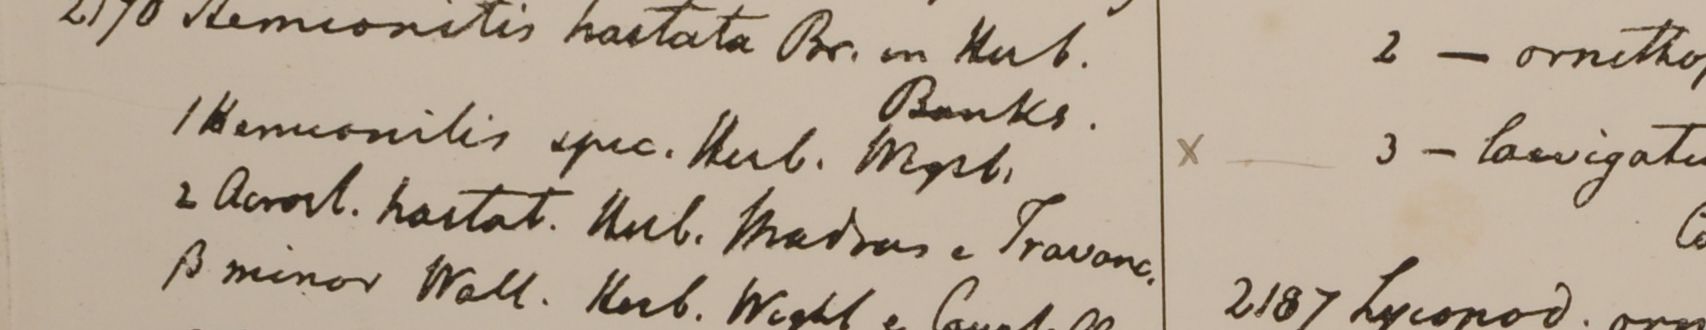 2170 Hemionitis hastata Br. in Herb.
Banks.
1 Hemionitis spec. Herb. Wight.
2 Acrost. hastat. Herb. Madras e Travanc.
β minor Wall. Herb. Wight e
2 — 
3 — laevigatu
2187 Lycopod.